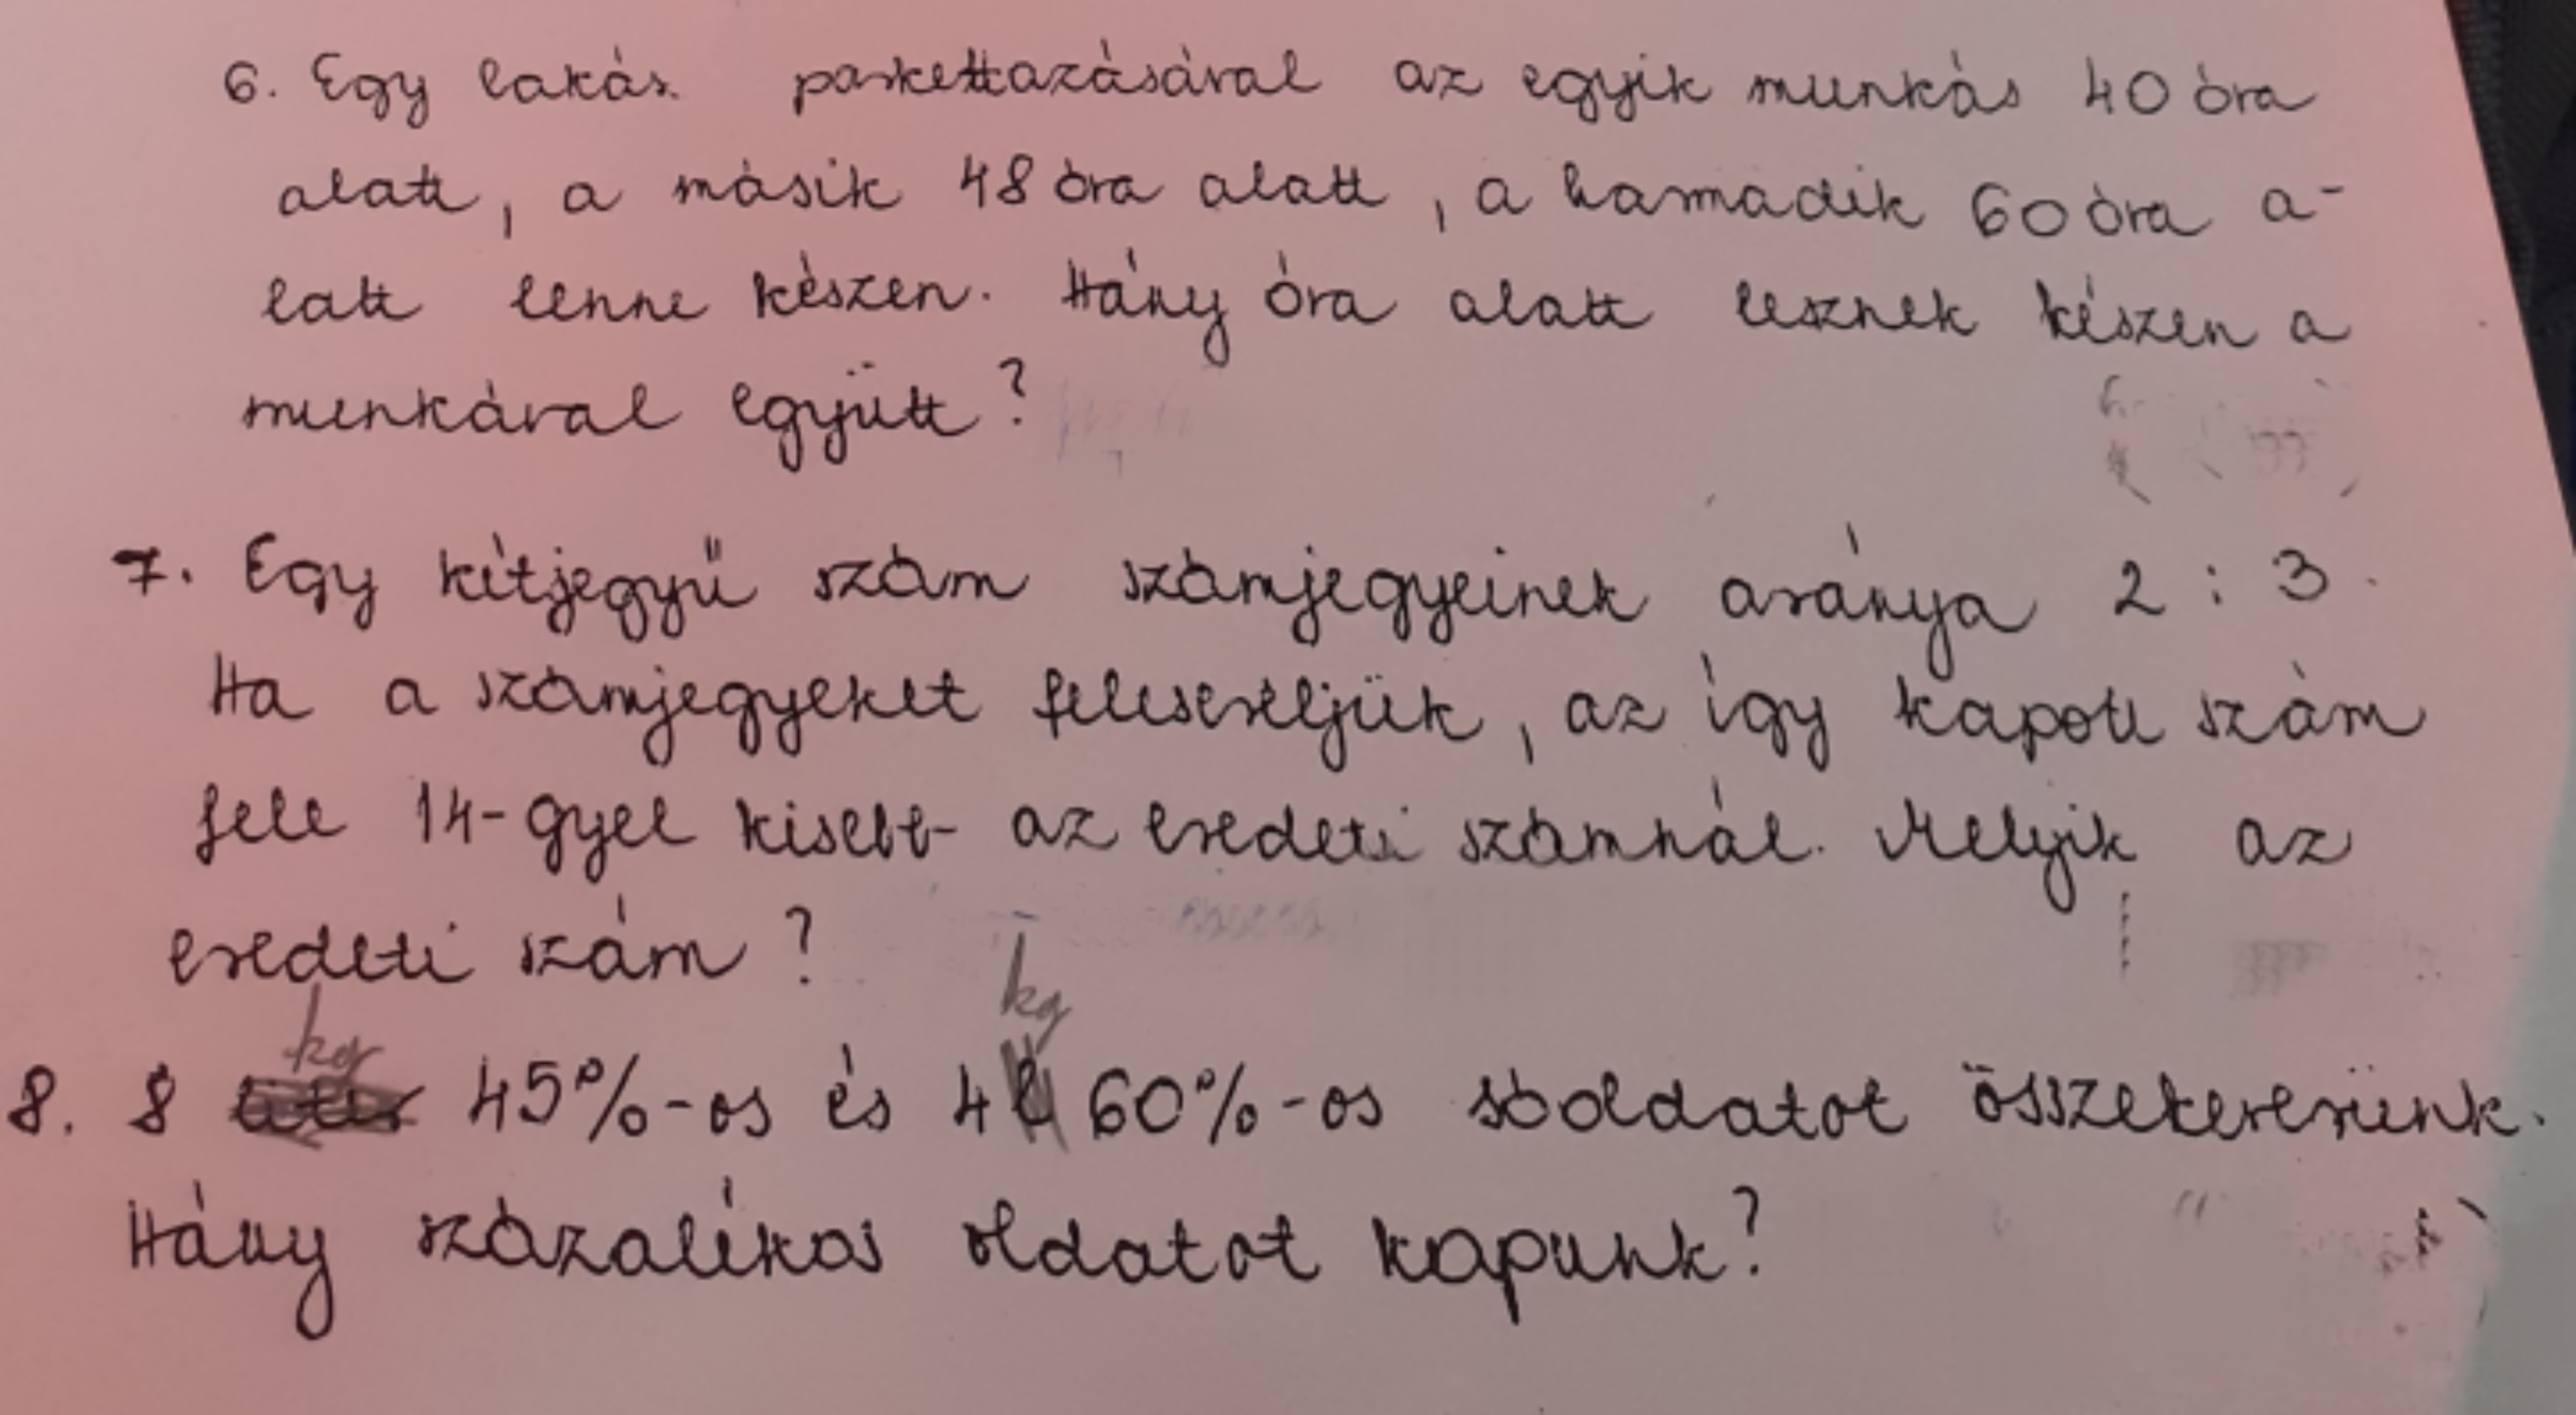 6. Egy lakás parkettazásával az egyik munkás 40 óra
alatt, a másik 48 óra alatt, a harmadik 60 óra a-
latt lenne készen. Hány óra alatt lesznek készen a
munkával együtt?
7. Egy kétjegyű szám számjegyeinek aránya 2 : 3.
Ha a számjegyeket felcseréljük, az így kapott szám
fele 14-gyel kisebb az eredeti számnál. Melyik az
eredeti szám?
kg kg
8. 8 liter 45%-os és 4 l 60%-os sóoldatot összekeverünk.
Hány százalékos oldatot kapunk?